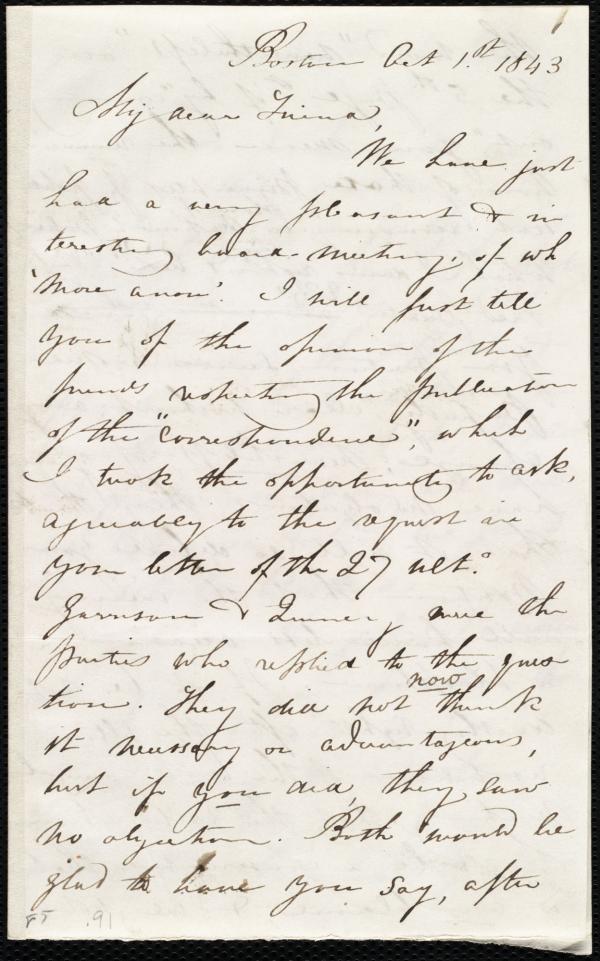 Boston Oct 1.st 1843
My dear Friend,
We have just
had a very pleasant & in
teresting board-meeting, of wh
'more anon'. I will just tell
you of the opinion of the
friends respecting the publication
of the "correspondence", which
I took the opportunity to ask,
agreeably to the request in
your letter of the 27 ult.o
Garrison & Quincy were the
parties who replied to the ques
tion. They did not now think
it necessary or advantageous,
but if you did, they saw
no objection. Both would be
glad to have you say, after
FT .91